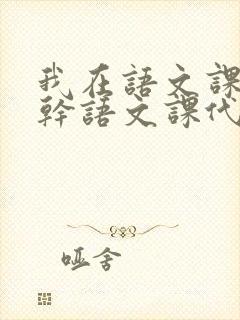 我在語文課
幹語文課代
哑舍